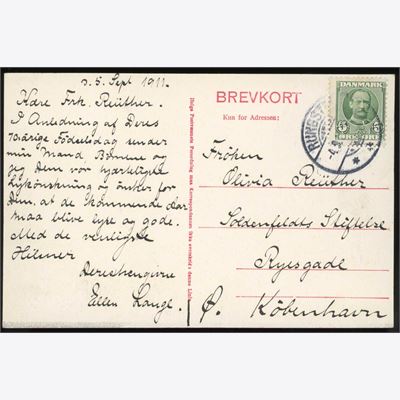 D. 5. Sept 1911.
Kære Frk. Reüther.
I Anledning af Deres
70aarige Fødselsdag sender
min Mand, Børnene og
jeg Dem vor hjerteligste
Lykønskning og ønsker for
Dem, at de kommende Aar
maa blive lyse og gode.
Med de venligste
Hilsner
Deres hengivne
Ellen Lange.
BREVKORT
Kun for Adressen:
DANMARK
5 ØRE 5
Frøken
Olivia Reüther
Soldenfeldts Stiftelse
Ryesgade
Ø. København